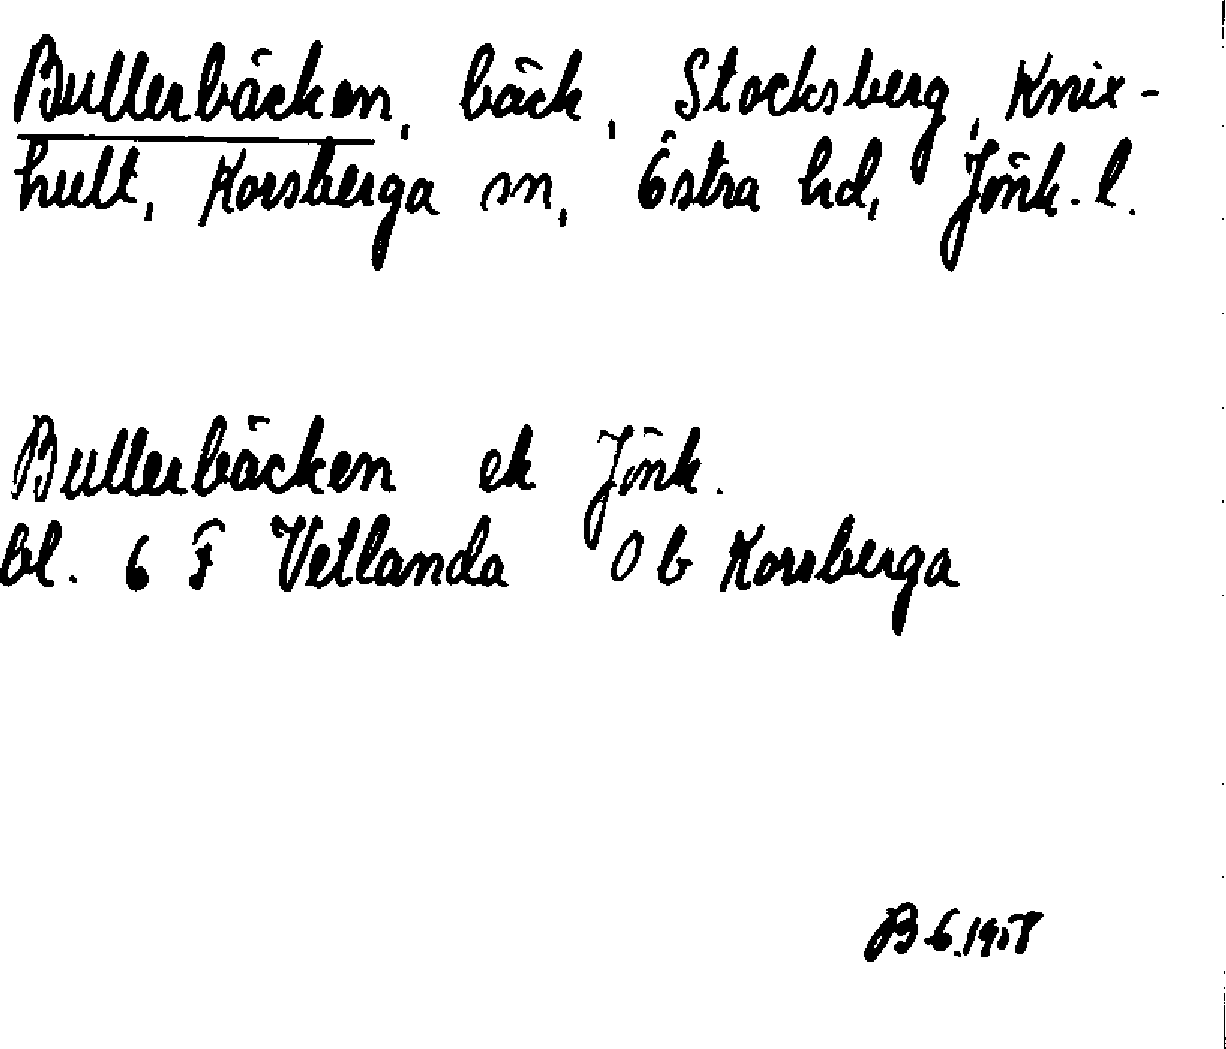 Bullerbäcken, bäck, Stocksberg, Knix-
hult, Korsberga sn, Östra hd, Jönk. l.
Bullerbäcken ek Jönk.
bl. 6 F Vetlanda 0 b Korsberga
B 6.1958